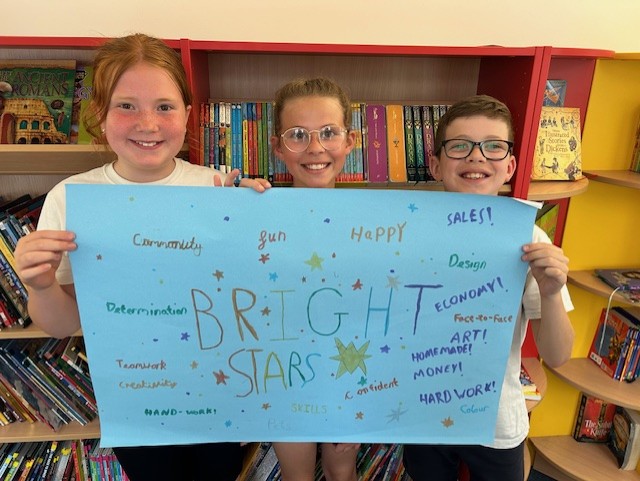 ROMANS
Illustrated
Stories from
Dickens
SALES!
Community
fun
HaPPY
Design
Determination
BRIGHT
ECONOMY!
Face-to-Face
ART!
STARS
HOMEMADE!
Teamwork
MONEY!
Creativity
Confident
HARD WORK!
HAND-WORK!
SKILLS
Colour